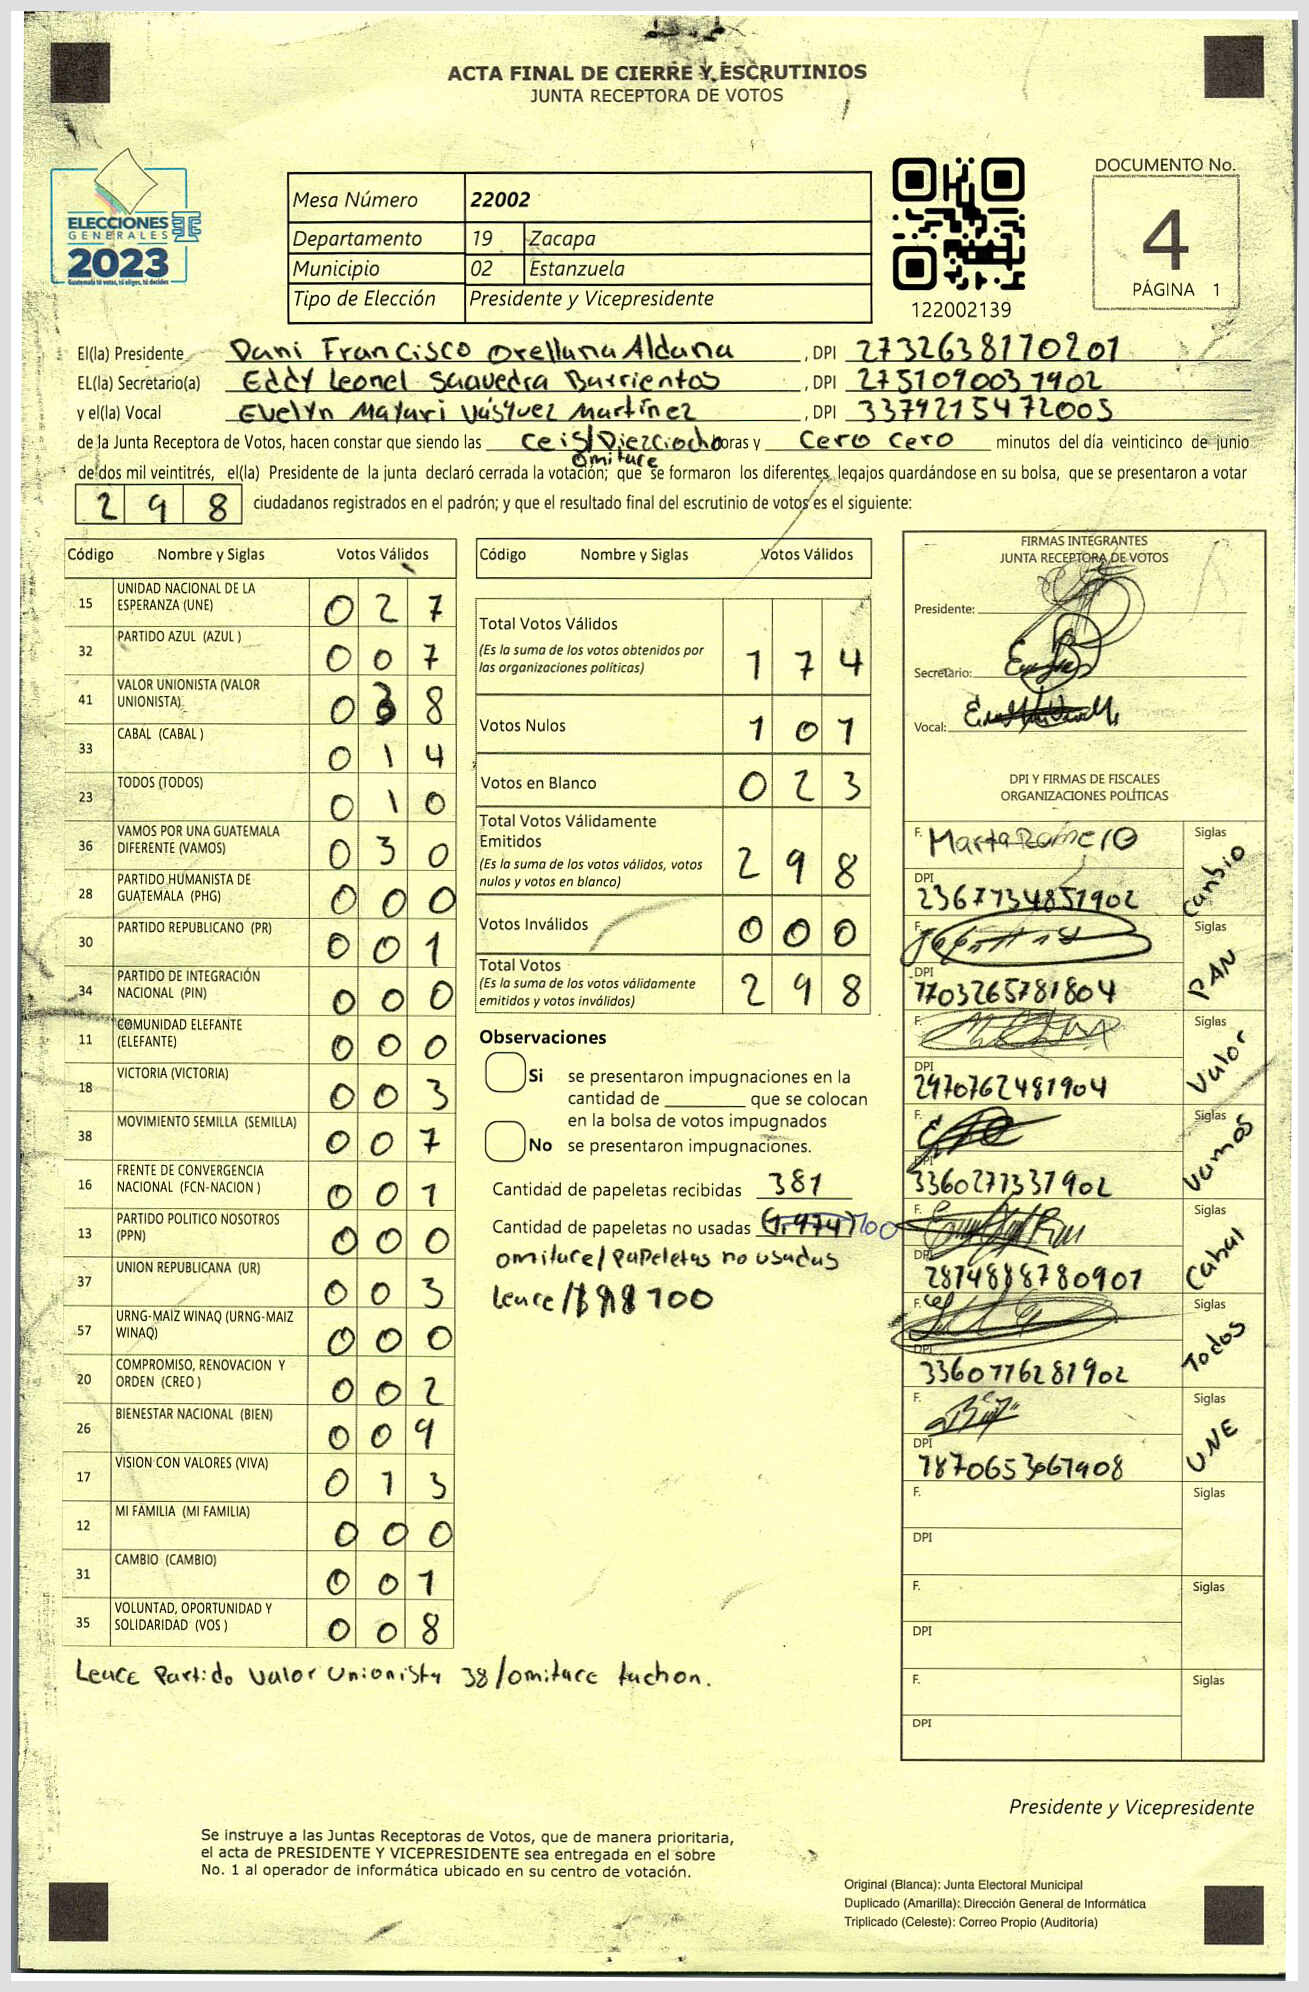 ACTA FINAL DE CIERRE Y ESCRUTINIOS
JUNTA RECEPTORA DE VOTOS
ELECCIONES
GENERALES
2023
Guatemala tú votas, tú eliges, tú decides
Mesa Número 22002
Departamento 19 Zacapa
Municipio 02 Estanzuela
Tipo de Elección Presidente y Vicepresidente
122002139
DOCUMENTO No.
4
PÁGINA 1
El(la) Presidente Dani Francisco Orellana Aldana , DPI 2732638170201
EL(la) Secretario(a) Eddy Leonel Saavedra Barrientos , DPI 2751090031902
y el(la) Vocal Evelyn Mayari Vásquez Martínez , DPI 3379215472005
de la Junta Receptora de Votos, hacen constar que siendo las ceis/Diezciocho horas y cero cero minutos del día veinticinco de junio
omitace
de dos mil veintitrés, el(la) Presidente de la junta declaró cerrada la votación; que se formaron los diferentes legajos quardándose en su bolsa, que se presentaron a votar
298 ciudadanos registrados en el padrón; y que el resultado final del escrutinio de votos es el siguiente:
Código Nombre y Siglas Votos Válidos
15 UNIDAD NACIONAL DE LA ESPERANZA (UNE) 027
32 PARTIDO AZUL (AZUL ) 007
41 VALOR UNIONISTA (VALOR UNIONISTA) 038
33 CABAL (CABAL ) 014
23 TODOS (TODOS) 010
36 VAMOS POR UNA GUATEMALA DIFERENTE (VAMOS) 030
28 PARTIDO HUMANISTA DE GUATEMALA (PHG) 000
30 PARTIDO REPUBLICANO (PR) 001
34 PARTIDO DE INTEGRACIÓN NACIONAL (PIN) 000
11 COMUNIDAD ELEFANTE (ELEFANTE) 000
18 VICTORIA (VICTORIA) 003
38 MOVIMIENTO SEMILLA (SEMILLA) 007
16 FRENTE DE CONVERGENCIA NACIONAL (FCN-NACION ) 001
13 PARTIDO POLITICO NOSOTROS (PPN) 000
37 UNION REPUBLICANA (UR) 003
57 URNG-MAIZ WINAQ (URNG-MAIZ WINAQ) 000
20 COMPROMISO, RENOVACION Y ORDEN (CREO ) 002
26 BIENESTAR NACIONAL (BIEN) 009
17 VISION CON VALORES (VIVA) 013
12 MI FAMILIA (MI FAMILIA) 000
31 CAMBIO (CAMBIO) 001
35 VOLUNTAD, OPORTUNIDAD Y SOLIDARIDAD (VOS ) 008
Leace Partido Valor Unionista 38/omitace tachon.
Código Nombre y Siglas Votos Válidos
Total Votos Válidos 174
(Es la suma de los votos obtenidos por
las organizaciones políticas)
Votos Nulos 101
Votos en Blanco 023
Total Votos Válidamente
Emitidos 298
(Es la suma de los votos válidos, votos
nulos y votos en blanco)
Votos Inválidos 000
Total Votos 298
(Es la suma de los votos válidamente
emitidos y votos inválidos)
Observaciones
Si se presentaron impugnaciones en la
cantidad de ________ que se colocan
en la bolsa de votos impugnados
No se presentaron impugnaciones.
Cantidad de papeletas recibidas 381
Cantidad de papeletas no usadas (1,974) 100
omitace/papeletas no usadas
Leace/ 100
FIRMAS INTEGRANTES
JUNTA RECEPTORA DE VOTOS
Presidente:
Secretario:
Vocal:
DPI Y FIRMAS DE FISCALES
ORGANIZACIONES POLÍTICAS
F. Marta Romero Siglas Cambio
DPI 2367734851902
F. Siglas PAN
DPI 1703265781804
F. Siglas Valor
DPI 2970762481904
F. Siglas Vamos
DPI 3360277331902
F. Siglas Cabal
DPI 2874888780901
F. Siglas Todos
DPI 3360776281902
F. Siglas UNE
DPI 1870653061908
F. Siglas
DPI
F. Siglas
DPI
F. Siglas
DPI
Presidente y Vicepresidente
Se instruye a las Juntas Receptoras de Votos, que de manera prioritaria,
el acta de PRESIDENTE Y VICEPRESIDENTE sea entregada en el sobre
No. 1 al operador de informática ubicado en su centro de votación.
Original (Blanca): Junta Electoral Municipal
Duplicado (Amarilla): Dirección General de Informática
Triplicado (Celeste): Correo Propio (Auditoría)